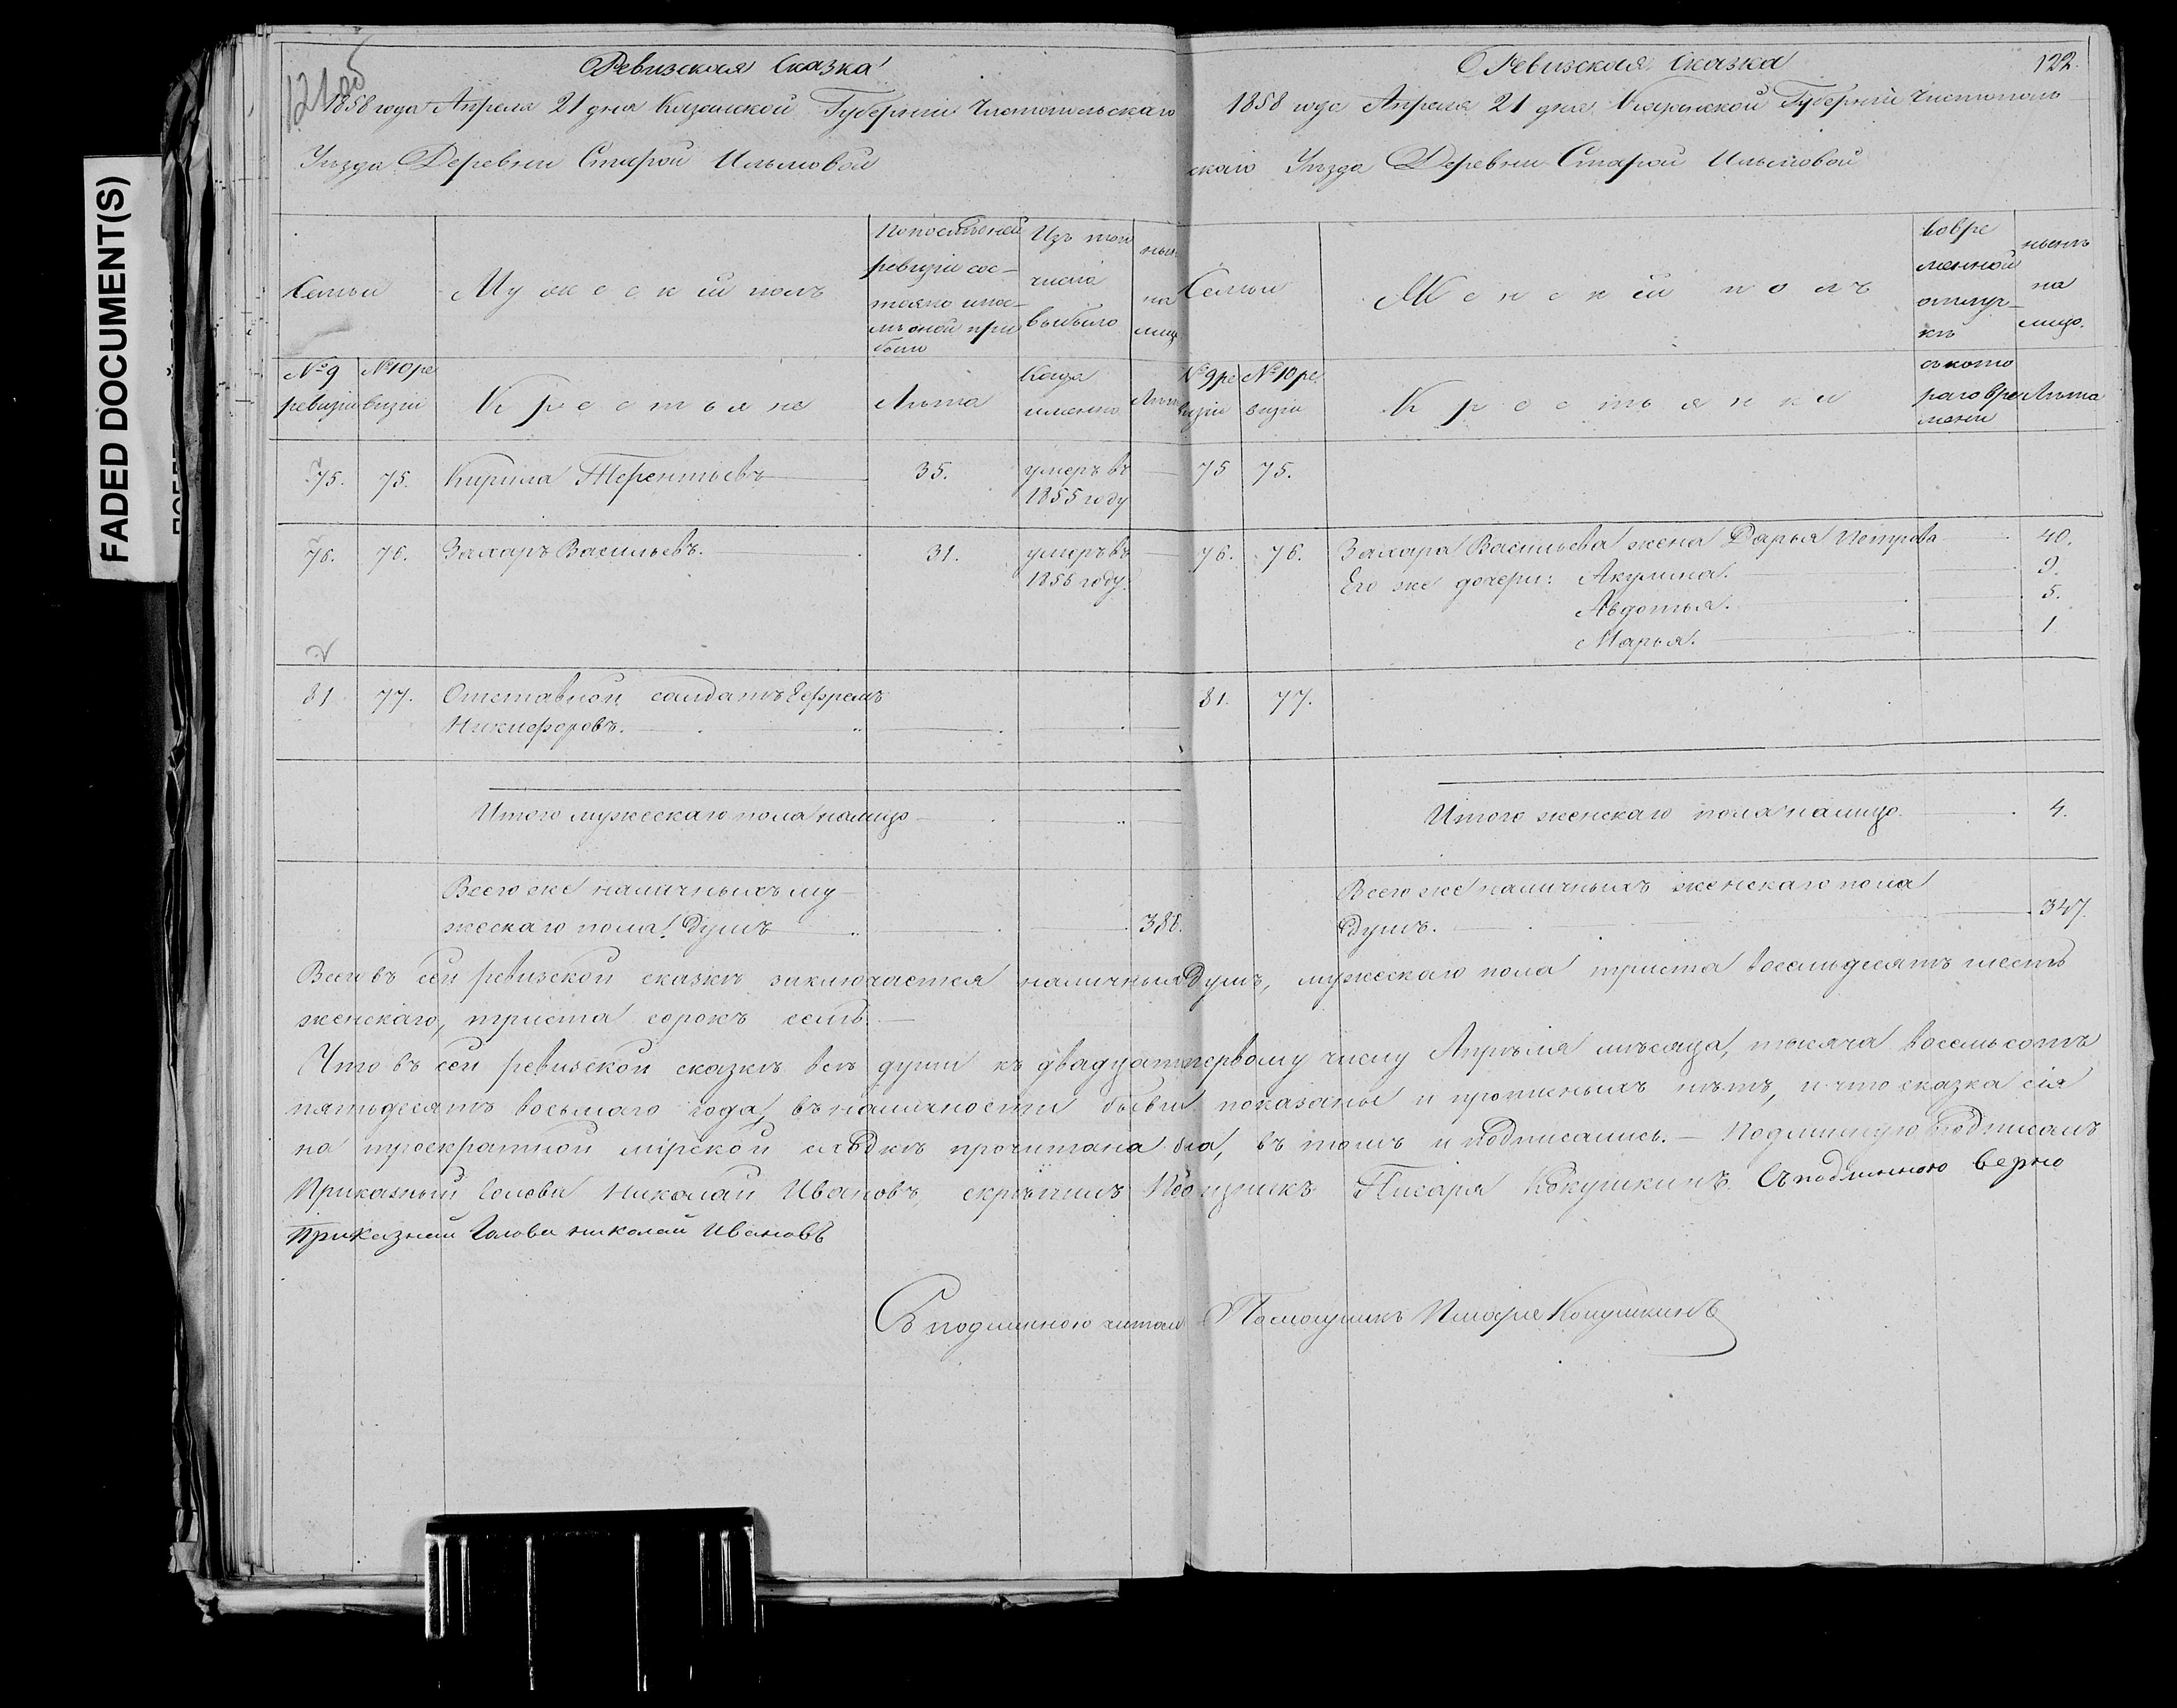 FADED DOCUMENT(S)
121 об
Ревизская Сказка
1858 года Апреля 21 дня Казанской Губерніи Чистопольскаго
Уѣзда Деревни Старой Ильмовой
Семьи
Мужескій полъ
По последней
ревизіи сос-
тояло и пос-
лѣ оной при
было
Изъ того
числа
выбыло
ныне
на
лицо
№ 9
ревизіи
№ 10 ре
визіи
Крестьяне
Лѣта
Когда
именно
Лѣта
75. 75. Кирила Терентьевъ 35. умеръ въ
1855 году
76. 76. Захаръ Васильевъ. 31. умеръ въ
1856 году.
81 77. Отставной солдатъ Ефремъ
Никифоровъ.
Итого мужескаго пола налицо
Всего же наличныхъ му
жескаго пола душъ 386.
Ревизская Сказка
122.
1858 года Апреля 21 дня Казанской Губерніи Чистополь
скаго Уѣзда Деревни Старой Ильмовой
Семьи
Женскій полъ
вовре
менной
отлуч-
кѣ
нынѣ
на
лицо.
№ 9 ре
визіи
№ 10 ре.
визіи
Крестьянки
съ кото
раго вре
мени
Лѣта
75 75.
76. 76. Захара Васильева жена Дарья Петрова 40.
Его же дочери: Акулина. 9.
Авдотья. 5.
Марья. 1
81. 77.
Итого женскаго пола налицо. 4.
Всего же наличныхъ женскаго пола
душъ. 347.
Всего въ сей ревизской сказкѣ заключается наличныхъ душъ, мужескаго пола триста восемьдесятъ шесть
женскаго, триста сорокъ семь. —
Что въ сей ревизской сказкѣ всѣ души къ двадцать первому числу Апрѣля мѣсяца, тысяча восемьсотъ
пятьдесятъ восьмаго года, въ наличности бывши показаны и прописныхъ нѣтъ, и что сказка сія
на троекратной мірской сходкѣ прочитана была, въ томъ и подписались. — Подлинную подписалъ
Приказный Голова Николай Ивановъ, скрѣпилъ Писаря Кокушкинъ. Съ подлинною верно
Приказный Голова Николай Ивановъ
Съ подлинною читалъ Помощникъ Писаря Кокушкинъ